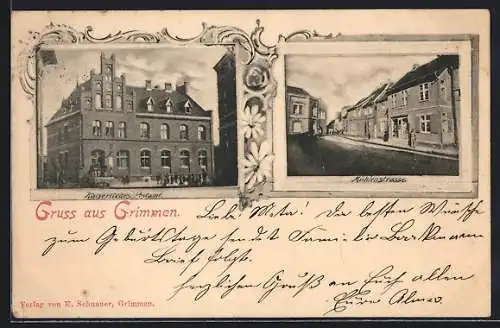 Kaiserliches Postamt.
Mühlenstrasse
Gruss aus Grimmen.
Liebe Meta! Die besten Wünsche
zum Geburtstage sendet Familie
Brief folgt.
herzlichen Gruß an Euch allen
Eure
Verlag von E. Schuster, Grimmen.